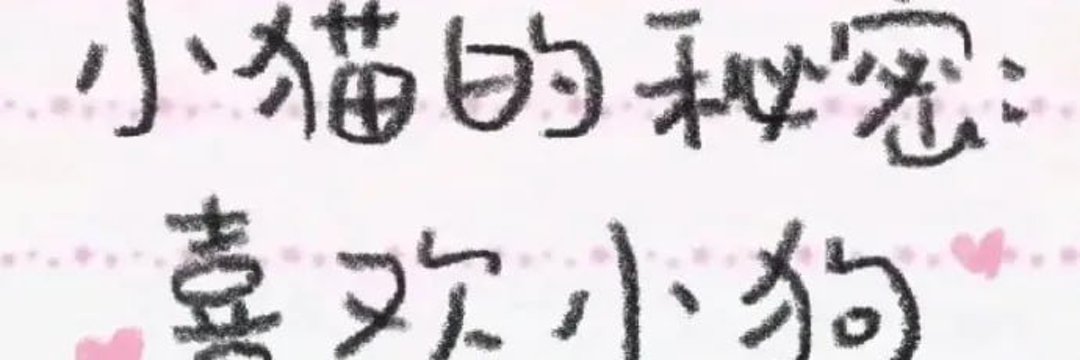 小猫的秘密:
喜欢小狗